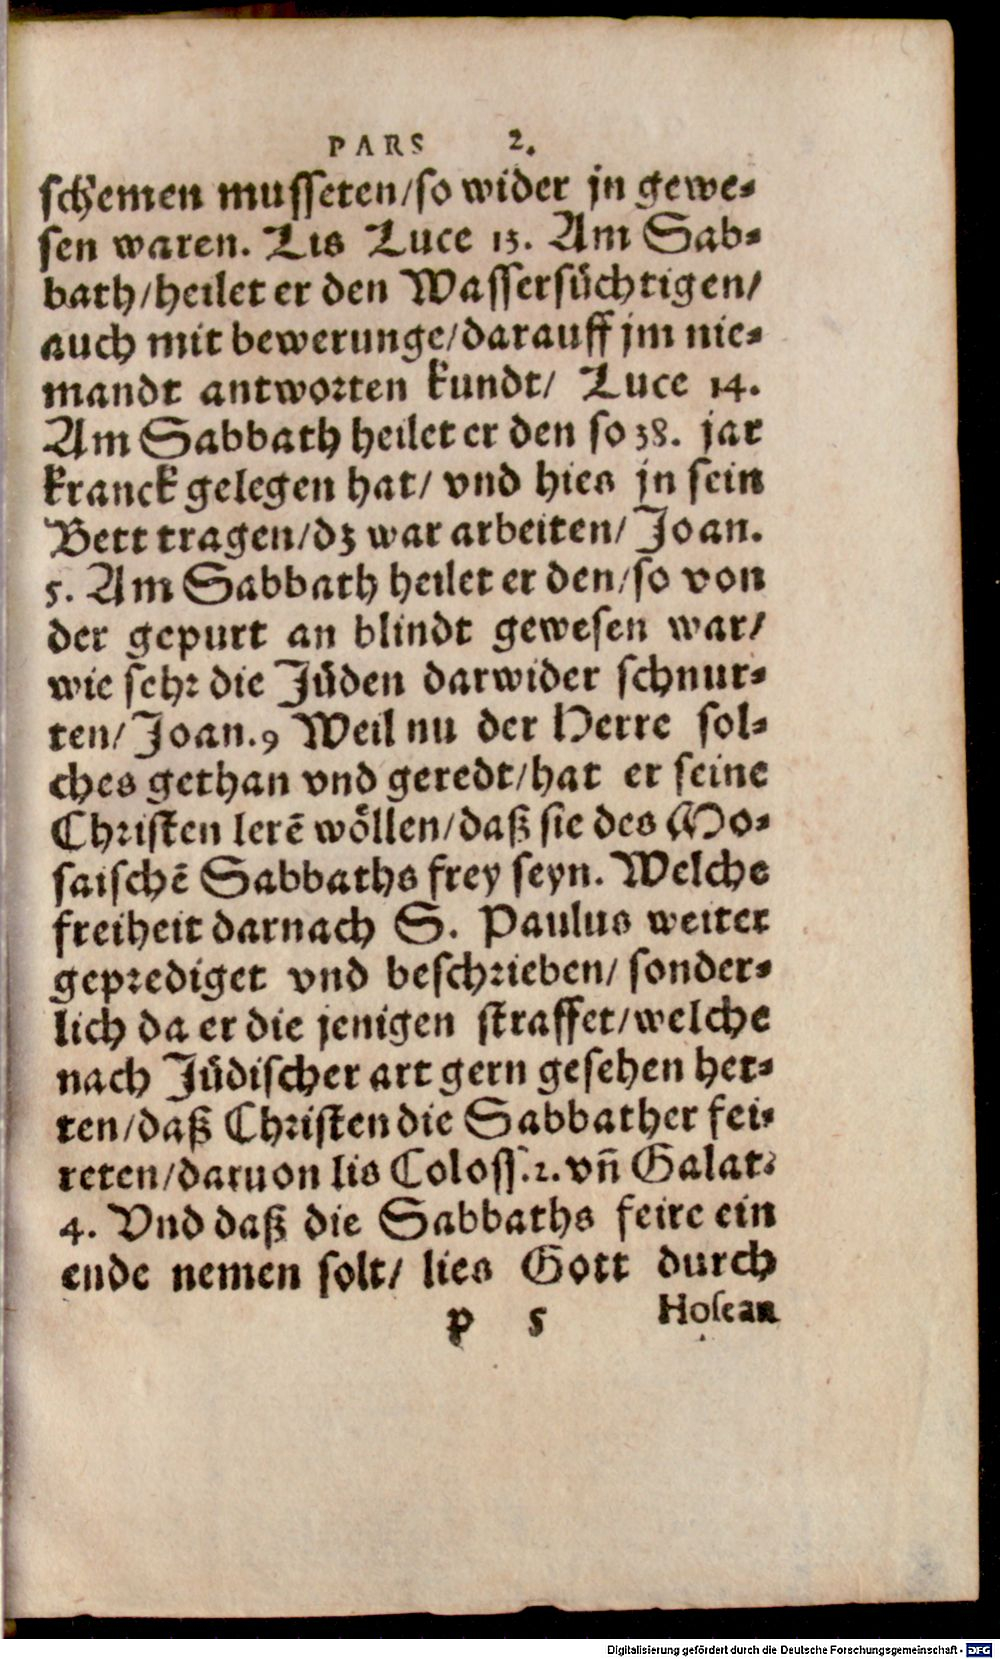 PARS 2.
schemen musseten/so wider jn gewe-
sen waren. Lis Luce 13. Am Sab-
bath/heilet er den Wassersüchtigen/
auch mit bewerunge/darauff jm nie-
mandt antworten kundt/ Luce 14.
Am Sabbath heilet er den so 38. jar
kranck gelegen hat/ vnd hies jn sein
Bett tragen/dz war arbeiten/ Joan.
5. Am Sabbath heilet er den/so von
der gepurt an blindt gewesen war/
wie sehr die Jüden darwider schnur-
ten/ Joan.9 Weil nu der Herre sol-
ches gethan vnd geredt/hat er seine
Christen lerē wöllen/daß sie des Mo-
saischē Sabbaths frey seyn. Welche
freiheit darnach S. Paulus weiter
geprediget vnd beschrieben/ sonder-
lich da er die jenigen straffet/welche
nach Jüdischer art gern gesehen het-
ten/daß Christen die Sabbather fei-
reten/daruon lis Coloss.2. vñ Galat:
4. Vnd daß die Sabbaths feire ein
ende nemen solt/ lies Gott durch
P 5 Hosean
Digitalisierung gefördert durch die Deutsche Forschungsgemeinschaft - DFG